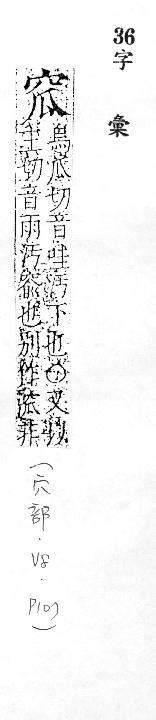 36
字彙
窊
烏瓜切音哇汚下也○又
主切音雨汚窬也別作窳非
(穴部.V8.P107)